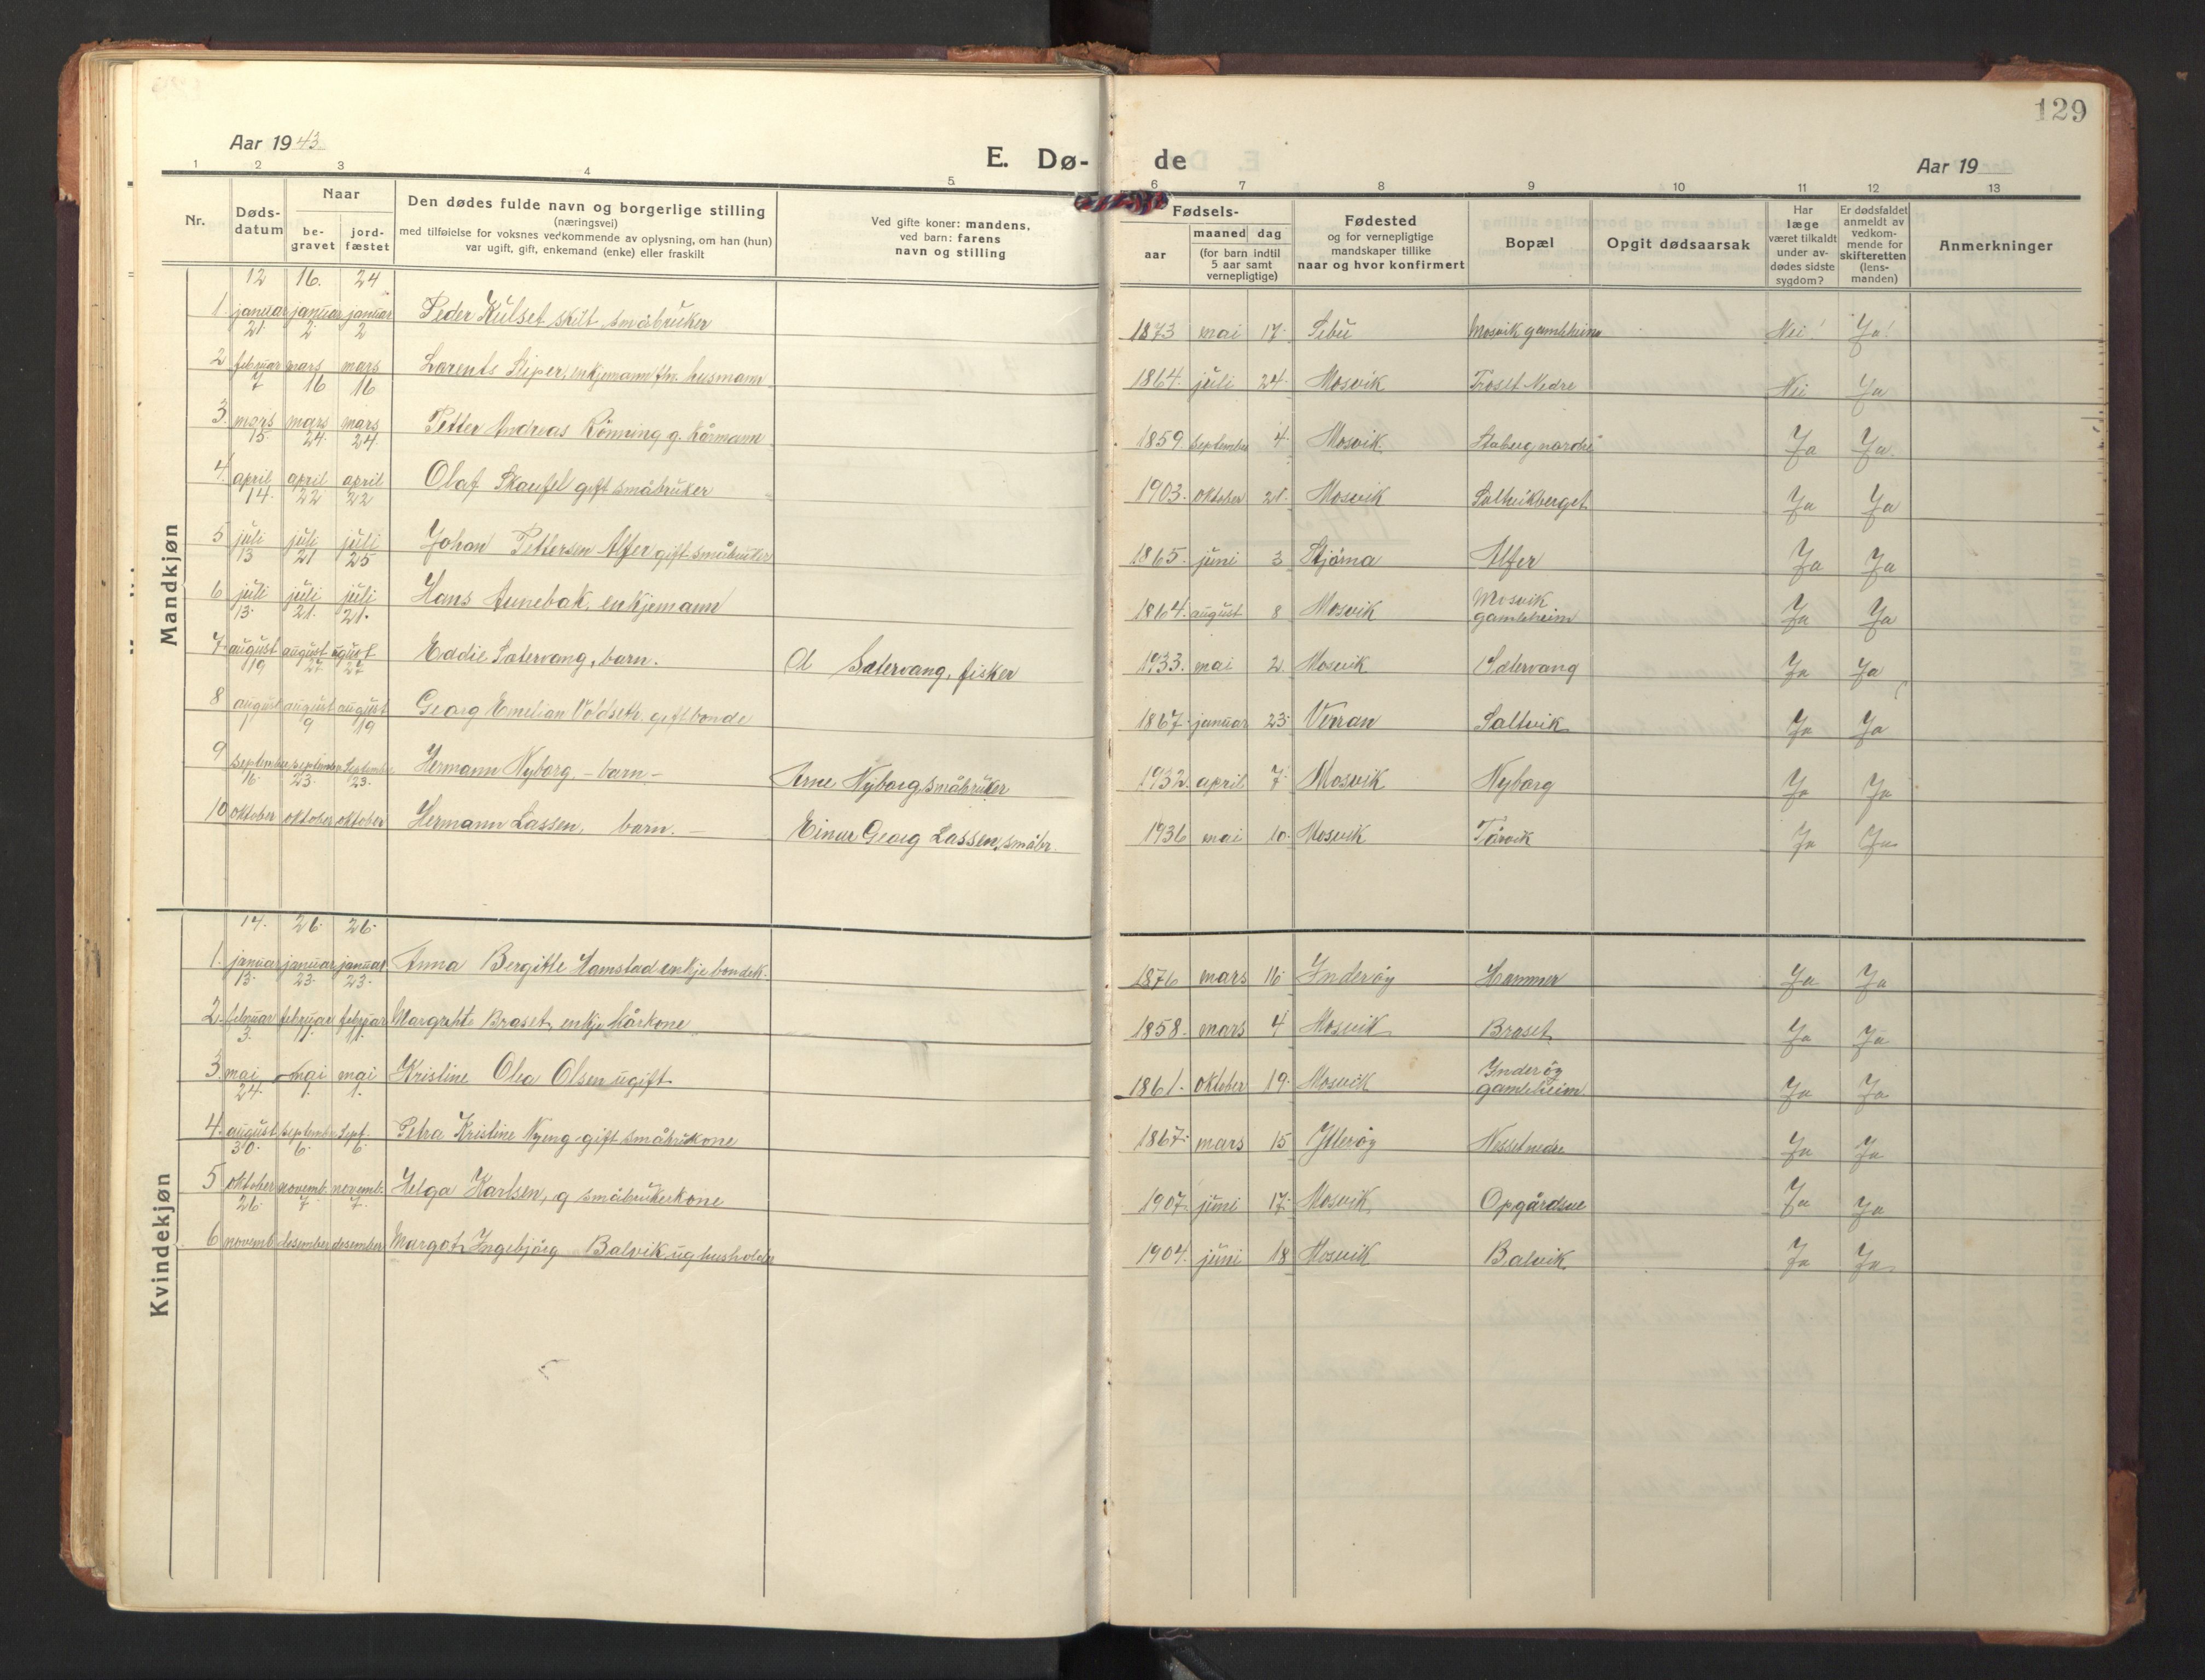 129
Aar 1943.
E. Dø-
de
Aar 19
1 2 3 4 5 6 7 8 9 10 11 12 13
Nr.
Døds-
datum
Naar
be-
gravet
jord-
fæstet
Den dødes fulde navn og borgerlige stilling
(næringsvei)
med tilføielse for voksnes vedkommende av oplysning, om han (hun)
var ugift, gift, enkemand (enke) eller fraskilt
Ved gifte koner: mandens,
ved barn: farens
navn og stilling
Fødsels-
aar
maaned dag
(for barn indtil
5 aar samt
vernepligtige)
Fødested
og for vernepligtige
mandskaper tillike
naar og hvor konfirmert
Bopæl
Opgit dødsaarsak
Har
læge
været tilkaldt
under av-
dødes sidste
sygdom?
Er dødsfaldet
anmeldt av
vedkom-
mende for
skifteretten
(lens-
manden)
Anmerkninger
Mandkjøn
12 16. 24
1. januar januar januar Peder Kulset skilt småbruker 1873 mai 17. Mosvik gamleheim Nei! Ja!
21. 2 2
2 februar mars mars Larents enkjemann husmann 1864. juli 24. Mosvik Troset Nedre Nei Ja
7 16 16
3. mars mars mars Petter Andreas Rönning g. kårmann 1859. september 4. Mosvik. Staberg nordre Ja Ja.
15 24. 24.
4. april april april Olaf Skaufel gift småbruker 1903. oktober 21. Mosvik Saltvikberget Ja Ja
14. 22 22
5 juli juli juli Johan Pettersen Alfer gift småbruker 1865. juni 3 Stjörna Alfer Ja Ja
13 21 25
6 juli juli juli Hans Aunebak, enkjemann 1864. august 8 Mosvik Mosvik gamleheim Ja Ja
13. 21. 21.
7. august august august Eddie Satervang, barn. Satervang, fisker 1933. mai 2. Mosvik Satervang Ja Ja
19 27 27
8 august august august Georg Emelian Voldseth, gift bonde 1867. januar 23. Verran Saltvik Ja Ja
1 9 19
9 september september September Hermann Nyborg, - barn - Arne Nyborg småbruker 1932. april 7. Mosvik Nyborg Ja Ja
16. 23. 23.
10 oktober oktober oktober Hermann Lassen, barn. - Einar Georg Lassen, småbr. 1936 mai 10. Mosvik Tårvik Ja Ja
Kvindekjøn
14. 26. 26.
1. januar januar januar Anna Bergitte Hamstad enkje bondek. 1876 mars 16 Inderöy Hammer Ja Ja
13. 23. 23.
2. februar februar februar Margrehte Braset enkje kårkone 1858. mars 4 Mosvik Braset Ja Ja
3. 11. 11.
3. mai mai mai Kristine Olea Olsen ugift 1861. oktober 19. Mosvik Inderöy gamleheim. Ja Ja
24. 1. 1.
4. august september Sept. Petra Kristine Nyeng gift småbrukone 1867. mars 15 Ytteröy Nesset nedre Ja Ja
30. 6. 6.
5 oktober novemb. novemb. Helga Karlsen, g småbrukerkone 1907. juni 17. Mosvik. Opgårdsve Ja Ja
26. 7. 7.
6 novemb. desember desember Margot Ingebjörg Balvik, ug husholder 1904. juni 18 Mosvik Balvik Ja Ja